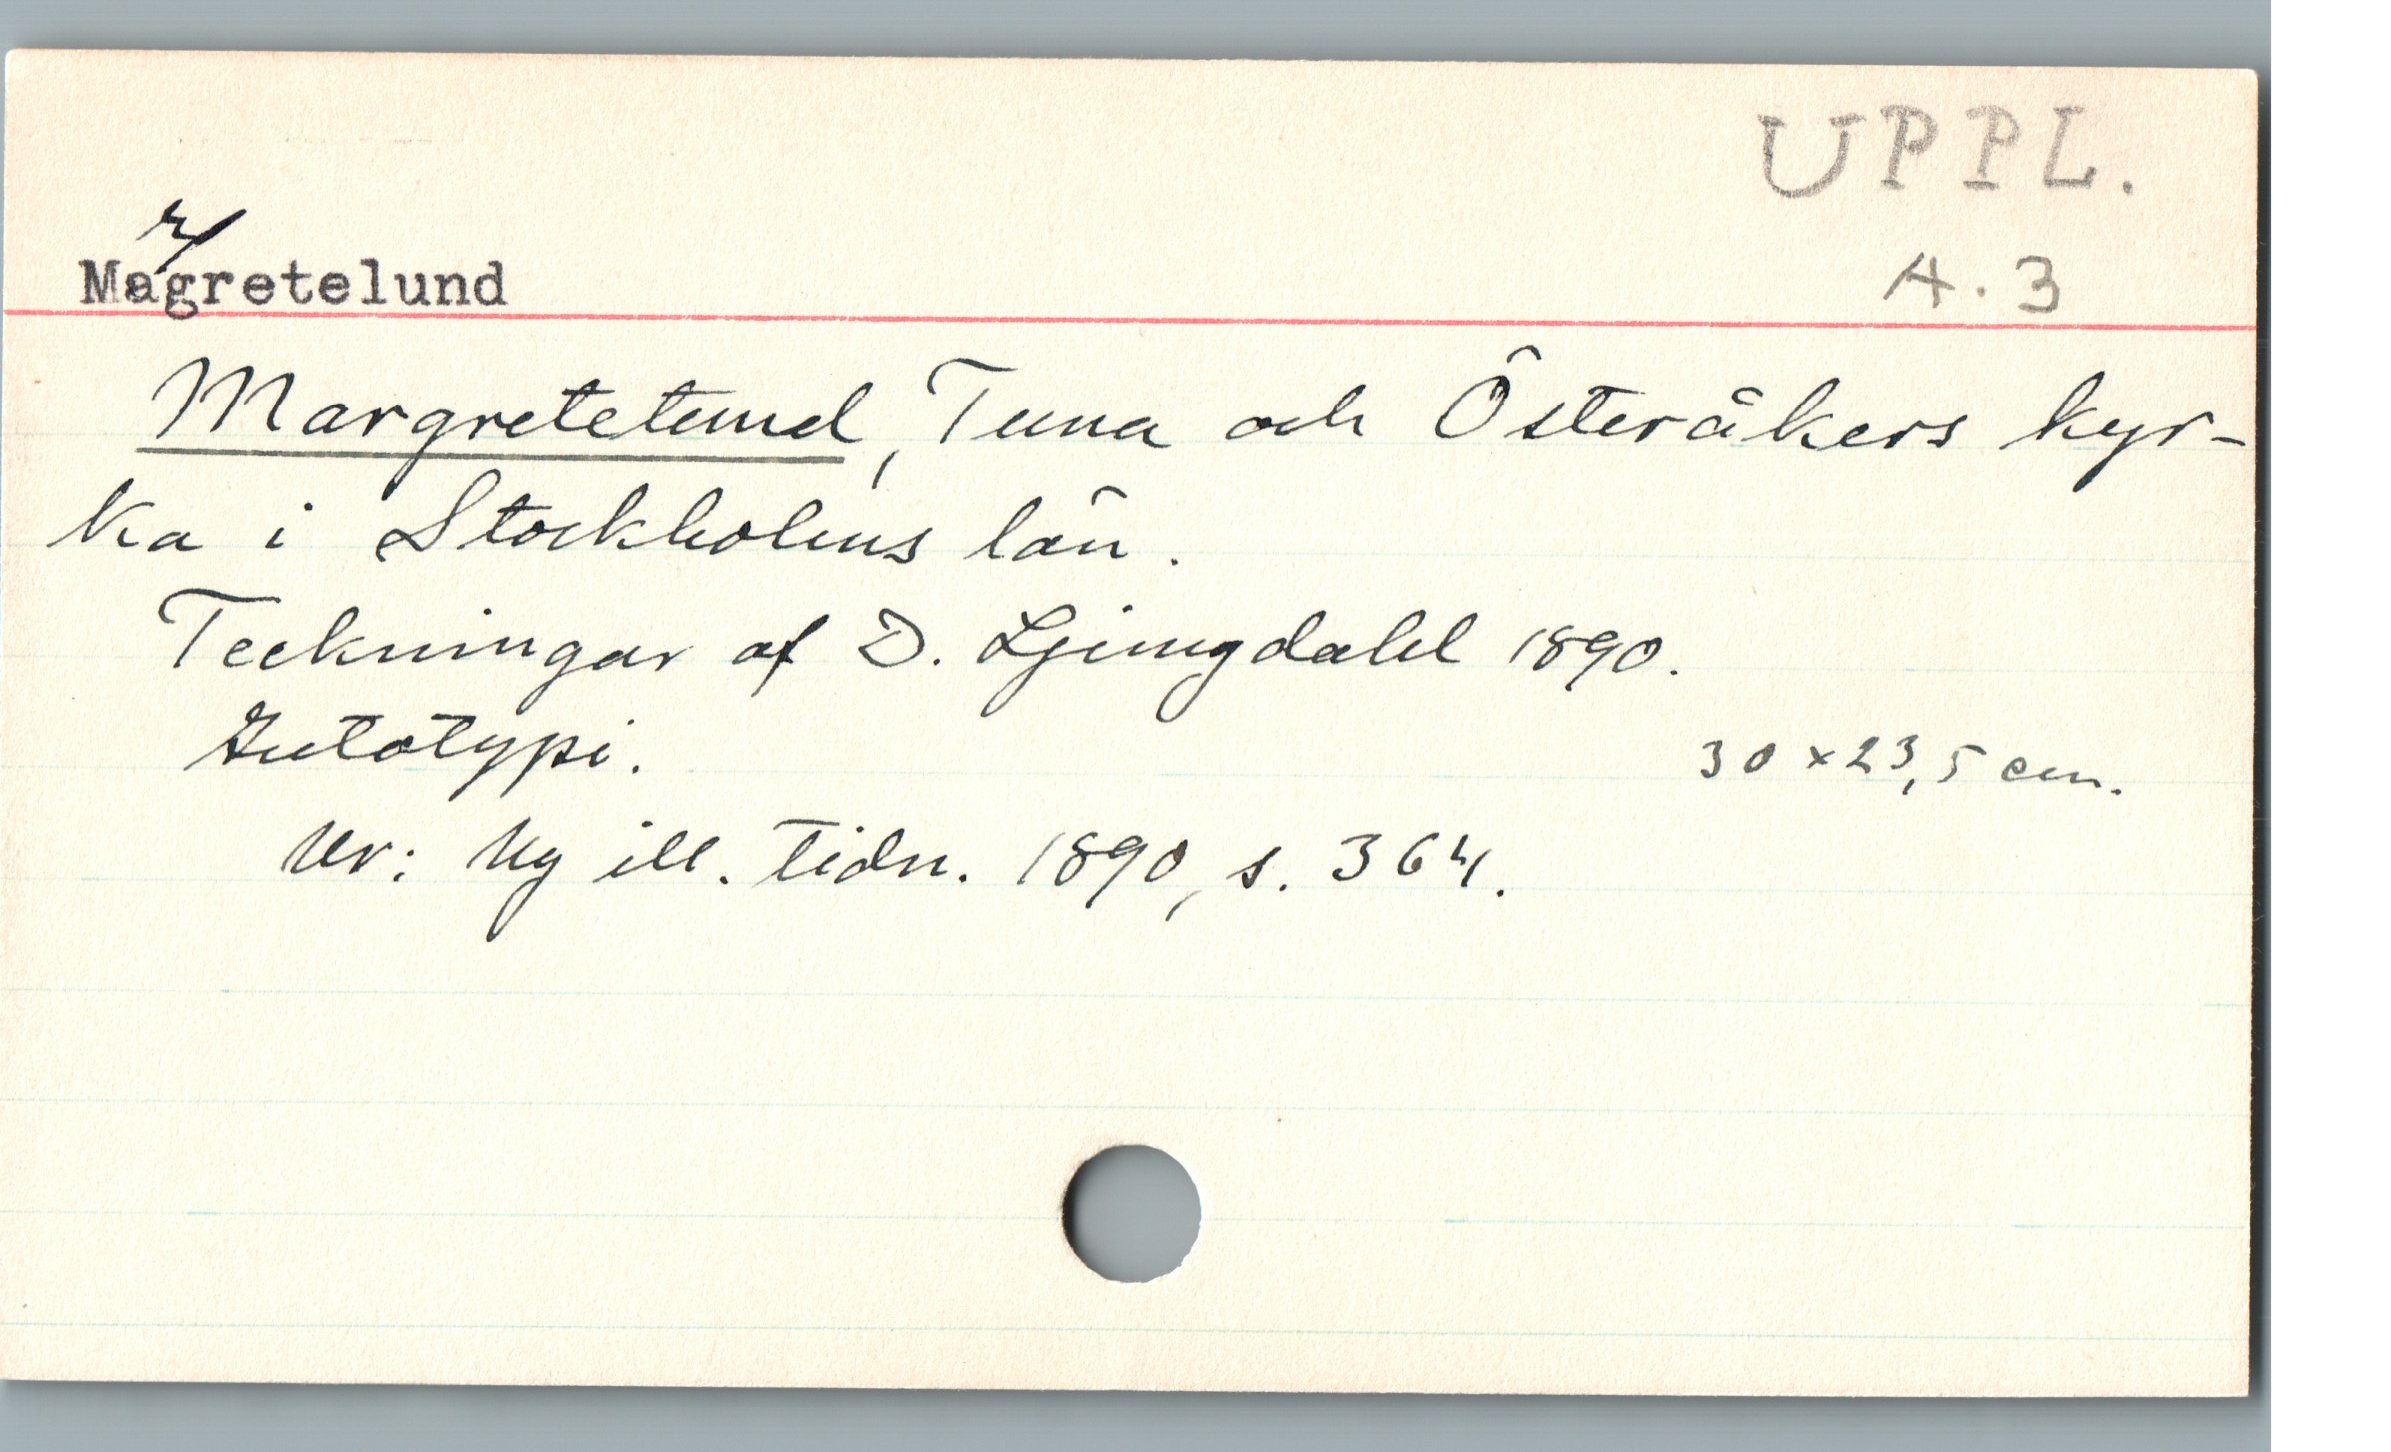 UPPL.
r/
Magretelund
A.3
Margretetund, Tuna och Österåkers kyr-
ka i Stockholms län.
Teckningar af D. Ljungdahl 1890.
Autotypi.
30 x 23,5 cm.
Ur: Ny ill. tidn. 1890, s. 364.